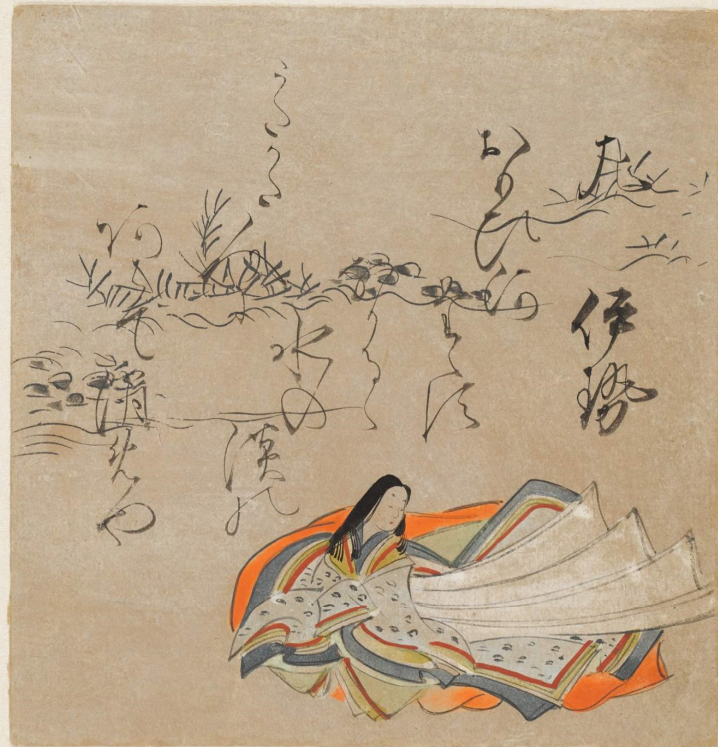 伊勢
おもひ河
たえす
なかるゝ
水の
淡の
うたかた
人に
阿はて消めや